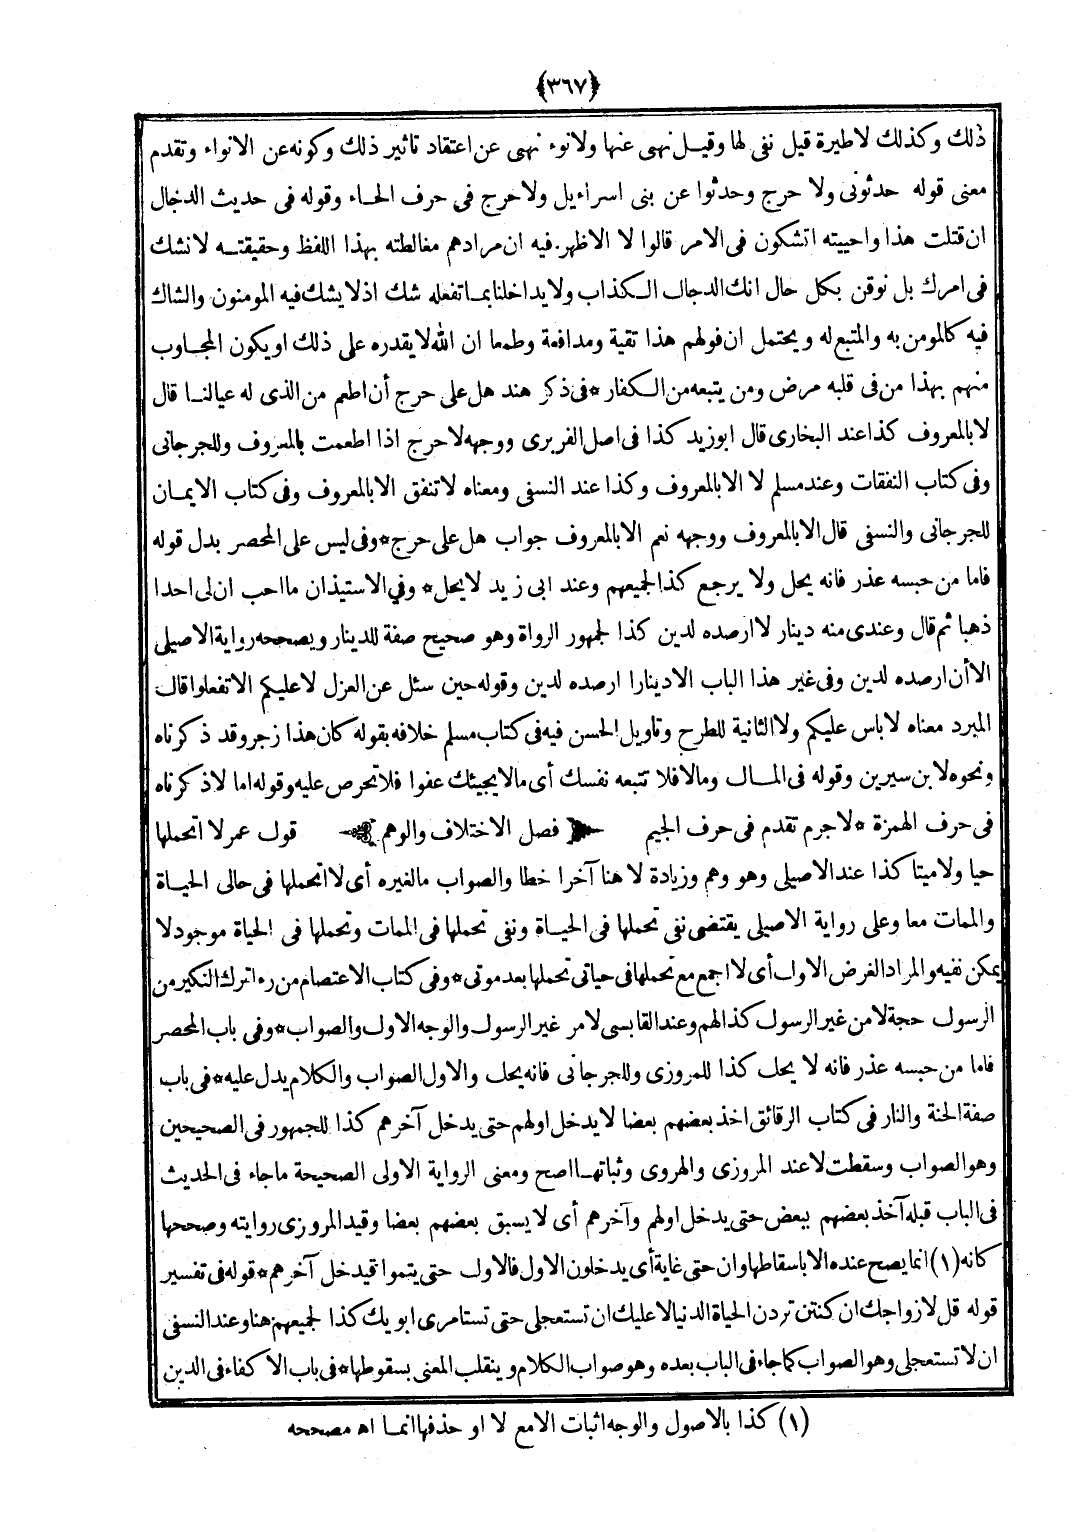 ﴿٣٦٧﴾
ذلك وكذلك لاطيرة قيل نفى لها وقيل نهى عنها ولانوء نهى عن اعتقاد تاثير ذلك وكونه عن الانواء وتقدم
معنى قوله حدثونى ولا حرج وحدثوا عن بنى اسراءيل ولاحرج فى حرف الحاء وقوله فى حديث الدخال
ان قتلت هذا واحييته اتشكون فى الامر قالوا لا الاظهر. فيه ان مرادهم مغالطته بهذا اللفظ وحقيقته لانشك
فى امرك بل نوقن بكل حال انك الدجال الكذاب ولايداخلنا بما تفعله شك اذلايشك فيه المومنون والشاك
فيه كالمومن به والمتبع له ويحتمل ان فولهم هذا تقية ومدافعة وطمعا ان الله لايقدره على ذلك اويكون المجاوب
منهم بهذا من فى قلبه مرض ومن يتبعه من الكفار * فى ذكر هند هل على حرج أن اطعم من الذى له عيالنا قال
لابالمعروف كذا عند البخارى قال ابوزيد كذا فى اصل الفربرى ووجهه لاحرج اذا اطعمت بالمعروف وللجرجانى
وفى كتاب النفقات وعند مسلم لا الابالمعروف وكذا عند النسفى ومعناه لاتنفق الابالمعروف وفى كتاب الايمان
للجرجانى والنسفى قال الابالمعروف ووجهه نعم الابالمعروف جواب هل على حرج * وفى ليس على المحصر بدل قوله
فاما من حبسه عذر فانه يحل ولا يرجع كذا لجميعهم وعند ابى زيد لايحل * وفي الاستيذان مااحب ان لى احدا
ذهبا ثم قال وعندى منه دينار لاارصده لدين كذا لجمهور الرواة وهو صحيح صفة للدينار ويصححه رواية الاصيلى
الاأن ارصده لدين وفى غير هذا الباب الادينارا ارصده لدين وقوله حين سئل عن العزل لاعليكم الاتفعلوا قال
المبرد معناه لاباس عليكم ولاالثانية للطرح وتاويل الحسن فيه فى كتاب مسلم خلافه بقوله كان هذا زجر وقد ذكرناه
ونحوه لابن سيرين وقوله فى المال ومالافلا تتبعه نفسك أى مالايجيئك عفوا فلاتحرص عليه وقوله اما لاذكرناه
فى حرف الهمزة * لاجرم تقدم فى حرف الجيم فصل الاختلاف والوهم قول عمر لا اتحملها
حيا ولاميتا كذا عند الاصيلى وهو وهم وزيادة لا هنا آخرا خطا والصواب مالغيره أى لااتحملها فى حالى الحياة
والممات معا وعلى رواية الاصيلى يقتضى نفى تحملها فى الحياة ونفى تحملها فى الممات وتحملها فى الحياة موجود لا
يمكن نفيه والمراد الغرض الاول أى لااجمع مع تحملها فى حياتى تحملها بعد موتى * وفى كتاب الاعتصام من رءا ترك النكير من
الرسول حجة لامن غير الرسول كذا لهم وعند القابسى لامر غير الرسول والوجه الاول والصواب * وفى باب المحصر
فاما من حبسه عذر فانه لا يحل كذا للمروزى وللجرجانى فانه يحل والاول الصواب والكلام يدل عليه * فى باب
صفة الحنة والنار فى كتاب الرقائق اخذ بعضهم بعضا لايدخل اولهم حتى يدخل آخرهم كذا للجمهور فى الصحيحين
وهو الصواب وسقطت لاعند المروزى والهروى وثباتها اصح ومعنى الرواية الاولى الصحيحة ماجاء فى الحديث
فى الباب قبله آخذ بعضهم ببعض حتى يدخل اولهم وآخرهم أى لايسبق بعضهم بعضا وقيد المروزى روايته وصححها
كانه (١) انما يصح عنده الاباسقاطها وان حتى غاية أى يدخلون الاول فالاول حتى يتموا قيدخل آخرهم * قوله فى تفسير
قوله قل لازواجك ان كنتن تردن الحياة الدنيا لاعليك ان تستعجلى حتى تستامرى ابويك كذا لجميعهم هنا وعند النسفى
ان لاتستعجلى وهو الصواب كماجاء فى الباب بعده وهو صواب الكلام وينقلب المعنى بسقوطها * فى باب الاكفاء فى الدين
(١) كذا بالاصول والوجه اثبات الامع لا او حذفها انما اه مصححه